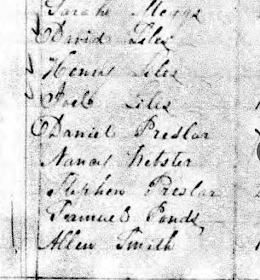 Sarah Meggs
David Liles
Henry Liles
Joel Liles
Daniel Preslar
Nancy Webster
Stephen Preslar
Samuel Ponds
Allen Smith